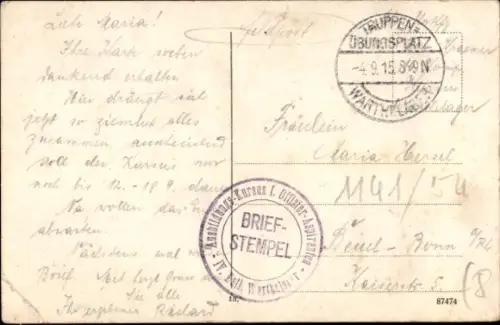 Liebe Maria!
Ihre Karte soeben
dankend erhalten
Hier drängt sich
jetzt so ziemlich alles
zusammen, anscheinend
soll der Kursus nur
noch bis 12. - 18. 9. dauern
Na wollen das
abwarten.
Nächstens mal
Brief. Mit herzl. Gruss
Ihr ergebener Richard
Feldpost
TRUPPEN-
ÜBUNGSPLATZ
-4.9.15. 8-9 N
WARTHELAGER
lager
Fräulein
Maria
1141/54
Beuel - Bonn a/Rh
Kaiserstr. 5.
Ausbildungs-Kursus f. Offizier-Aspiranten
BRIEF-
STEMPEL
18.
87474